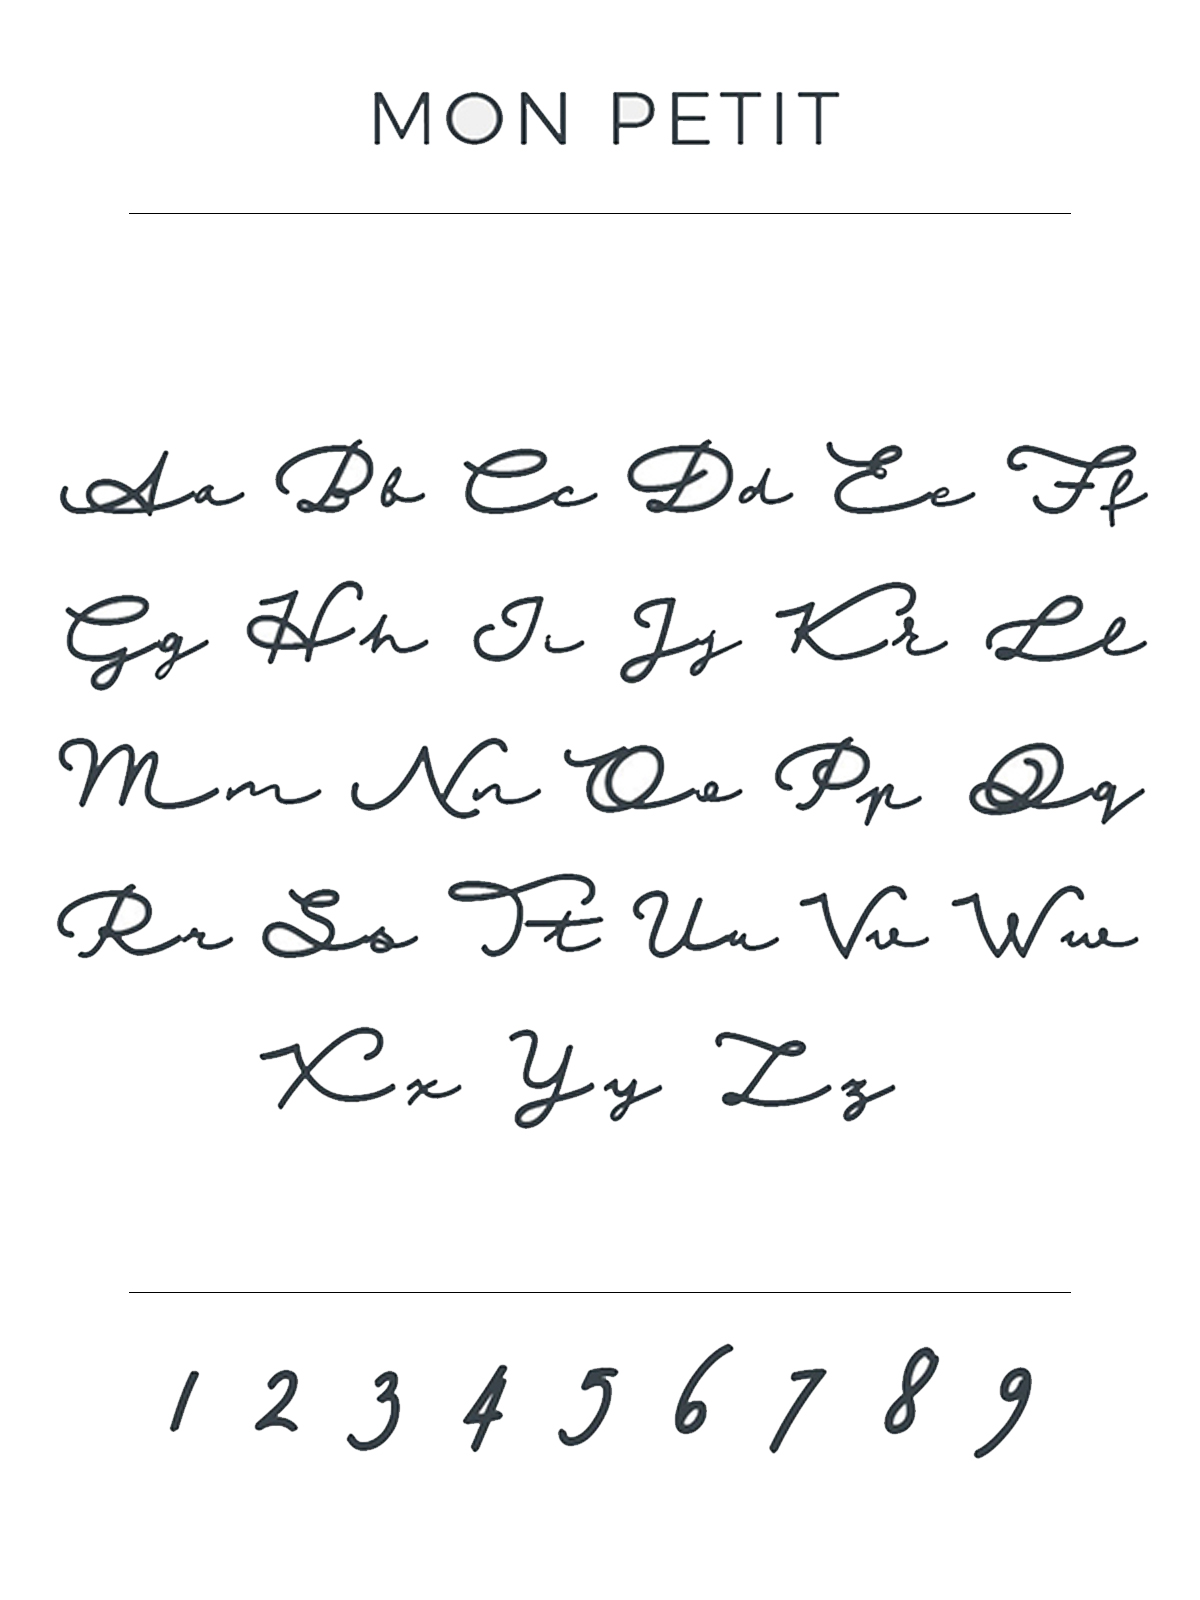 MON PETIT
Aa Bb Cc Dd Ee Ff
Gg Hh Ii Jj Kk Ll
Mm Nn Oo Pp Qq
Rr Ss Tt Uu Vv Ww
Xx Yy Zz
1 2 3 4 5 6 7 8 9